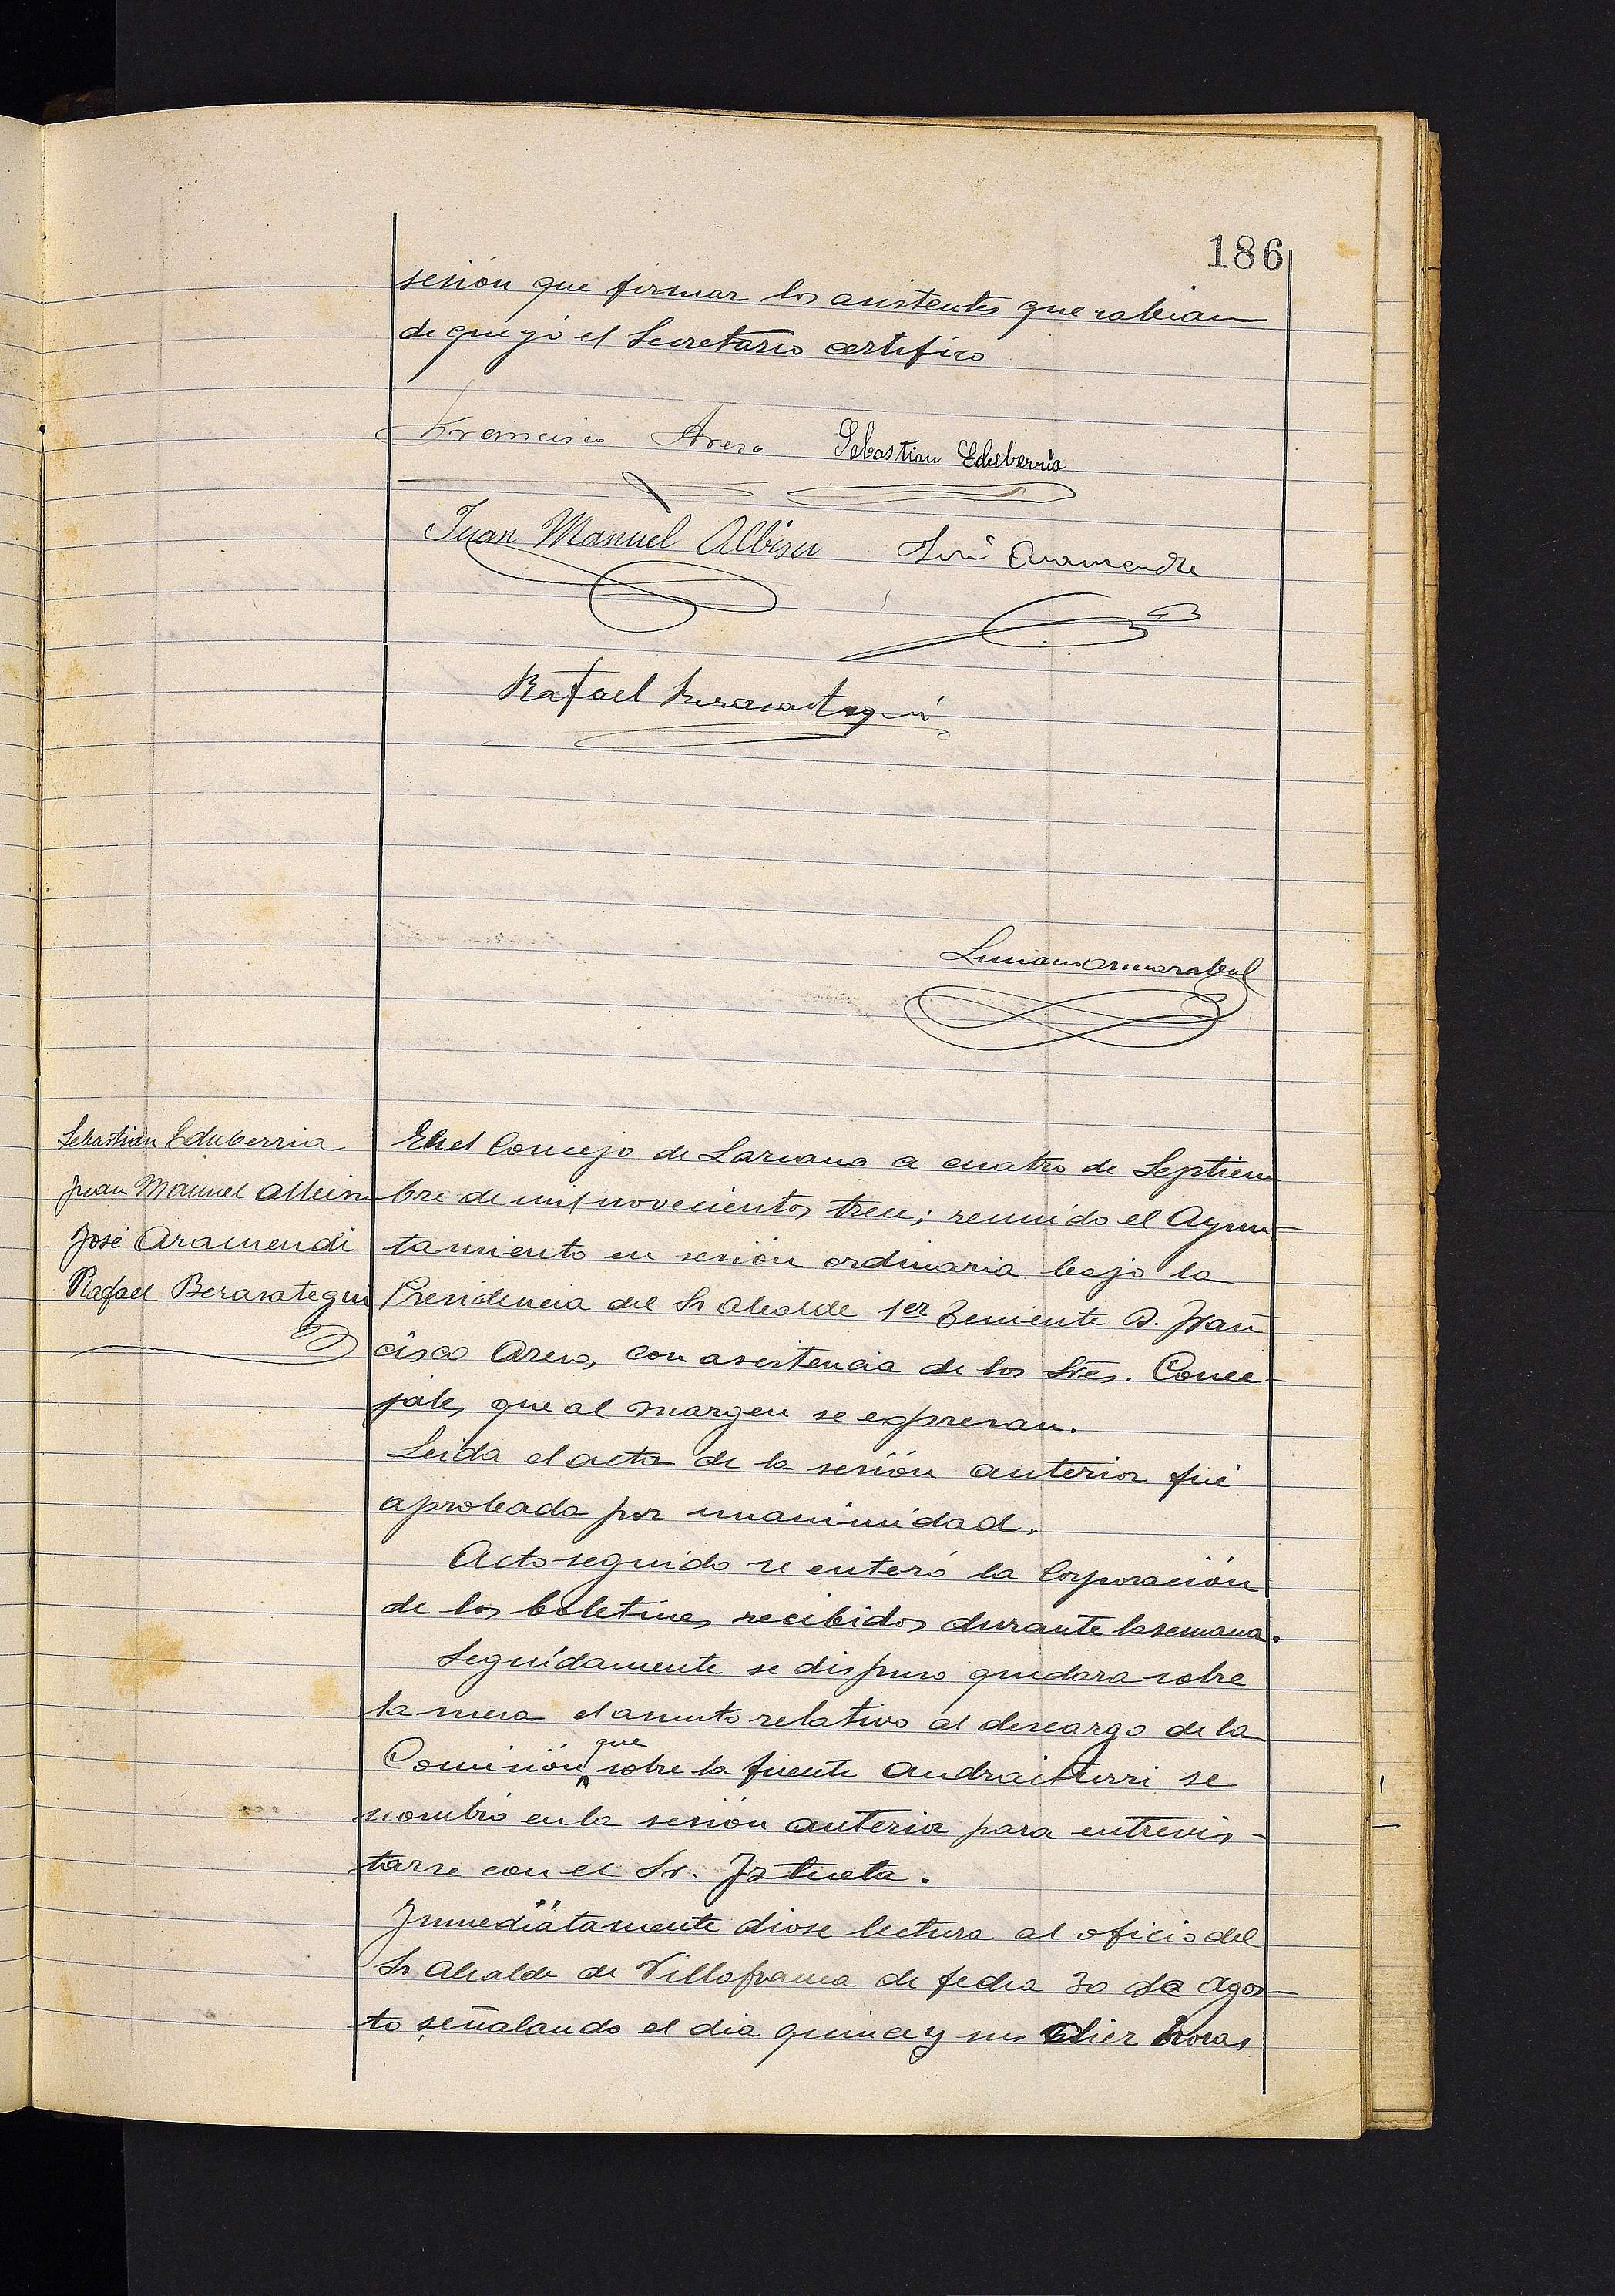 186
sesión que firman los asistentes que sabian
de que yó el Secretario certifico
Francisco Areso Sebastian Echeberria
Juan Manuel Albisu José Aramendi
Rafael Berasategui
Luciano
Sebastian Echeberria
Juan Manuel Albisu
José Aramendi
Rafael Berasategui
En el Concejo de Lazcano a cuatro de Septiem
bre de mil novecientos trece; reunido el Ayun-
tamiento en sesión ordinaria bajo la
Presidencia del Sr Alcalde 1er Teniente D. Fran
cisco Areso, con asistencia de los Sres. Conce-
jales que al margen se expresan.
Leida el acta de la sesión anterior fué
aprobada por unanimidad.
Acto seguido se enteró la Corporación
de los boletines recibidos durante la semana.
Seguidamente se dispuso quedara sobre
la mesa el asunto relativo al descargo de la
Comisión que sobre la fuente Andraisturri se
nombró en la sesión anterior para entrevis-
tarse con el Sr. Iztueta.
Inmediatamente diose lectura al oficio del
Sr Alcalde de Villafranca de fecha 30 de Agos-
to señalando el dia quince y sus diez horas